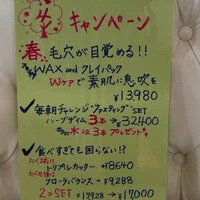 キャンペーン
春、毛穴が目覚める!!
WAX and クレイパック
Wケアで素肌に息吹を
¥13,980
✓毎朝月チャレンジ"ファスティング"SET
ハーブザイム 3本→¥32,400
さらに水2L 3本プレゼント
✓食べすぎても困らない!?
たべる前に
トリプルカッター ¥8,640
たべた後に
フローラバランス ¥9,288
2つSET ¥17928→¥17,000